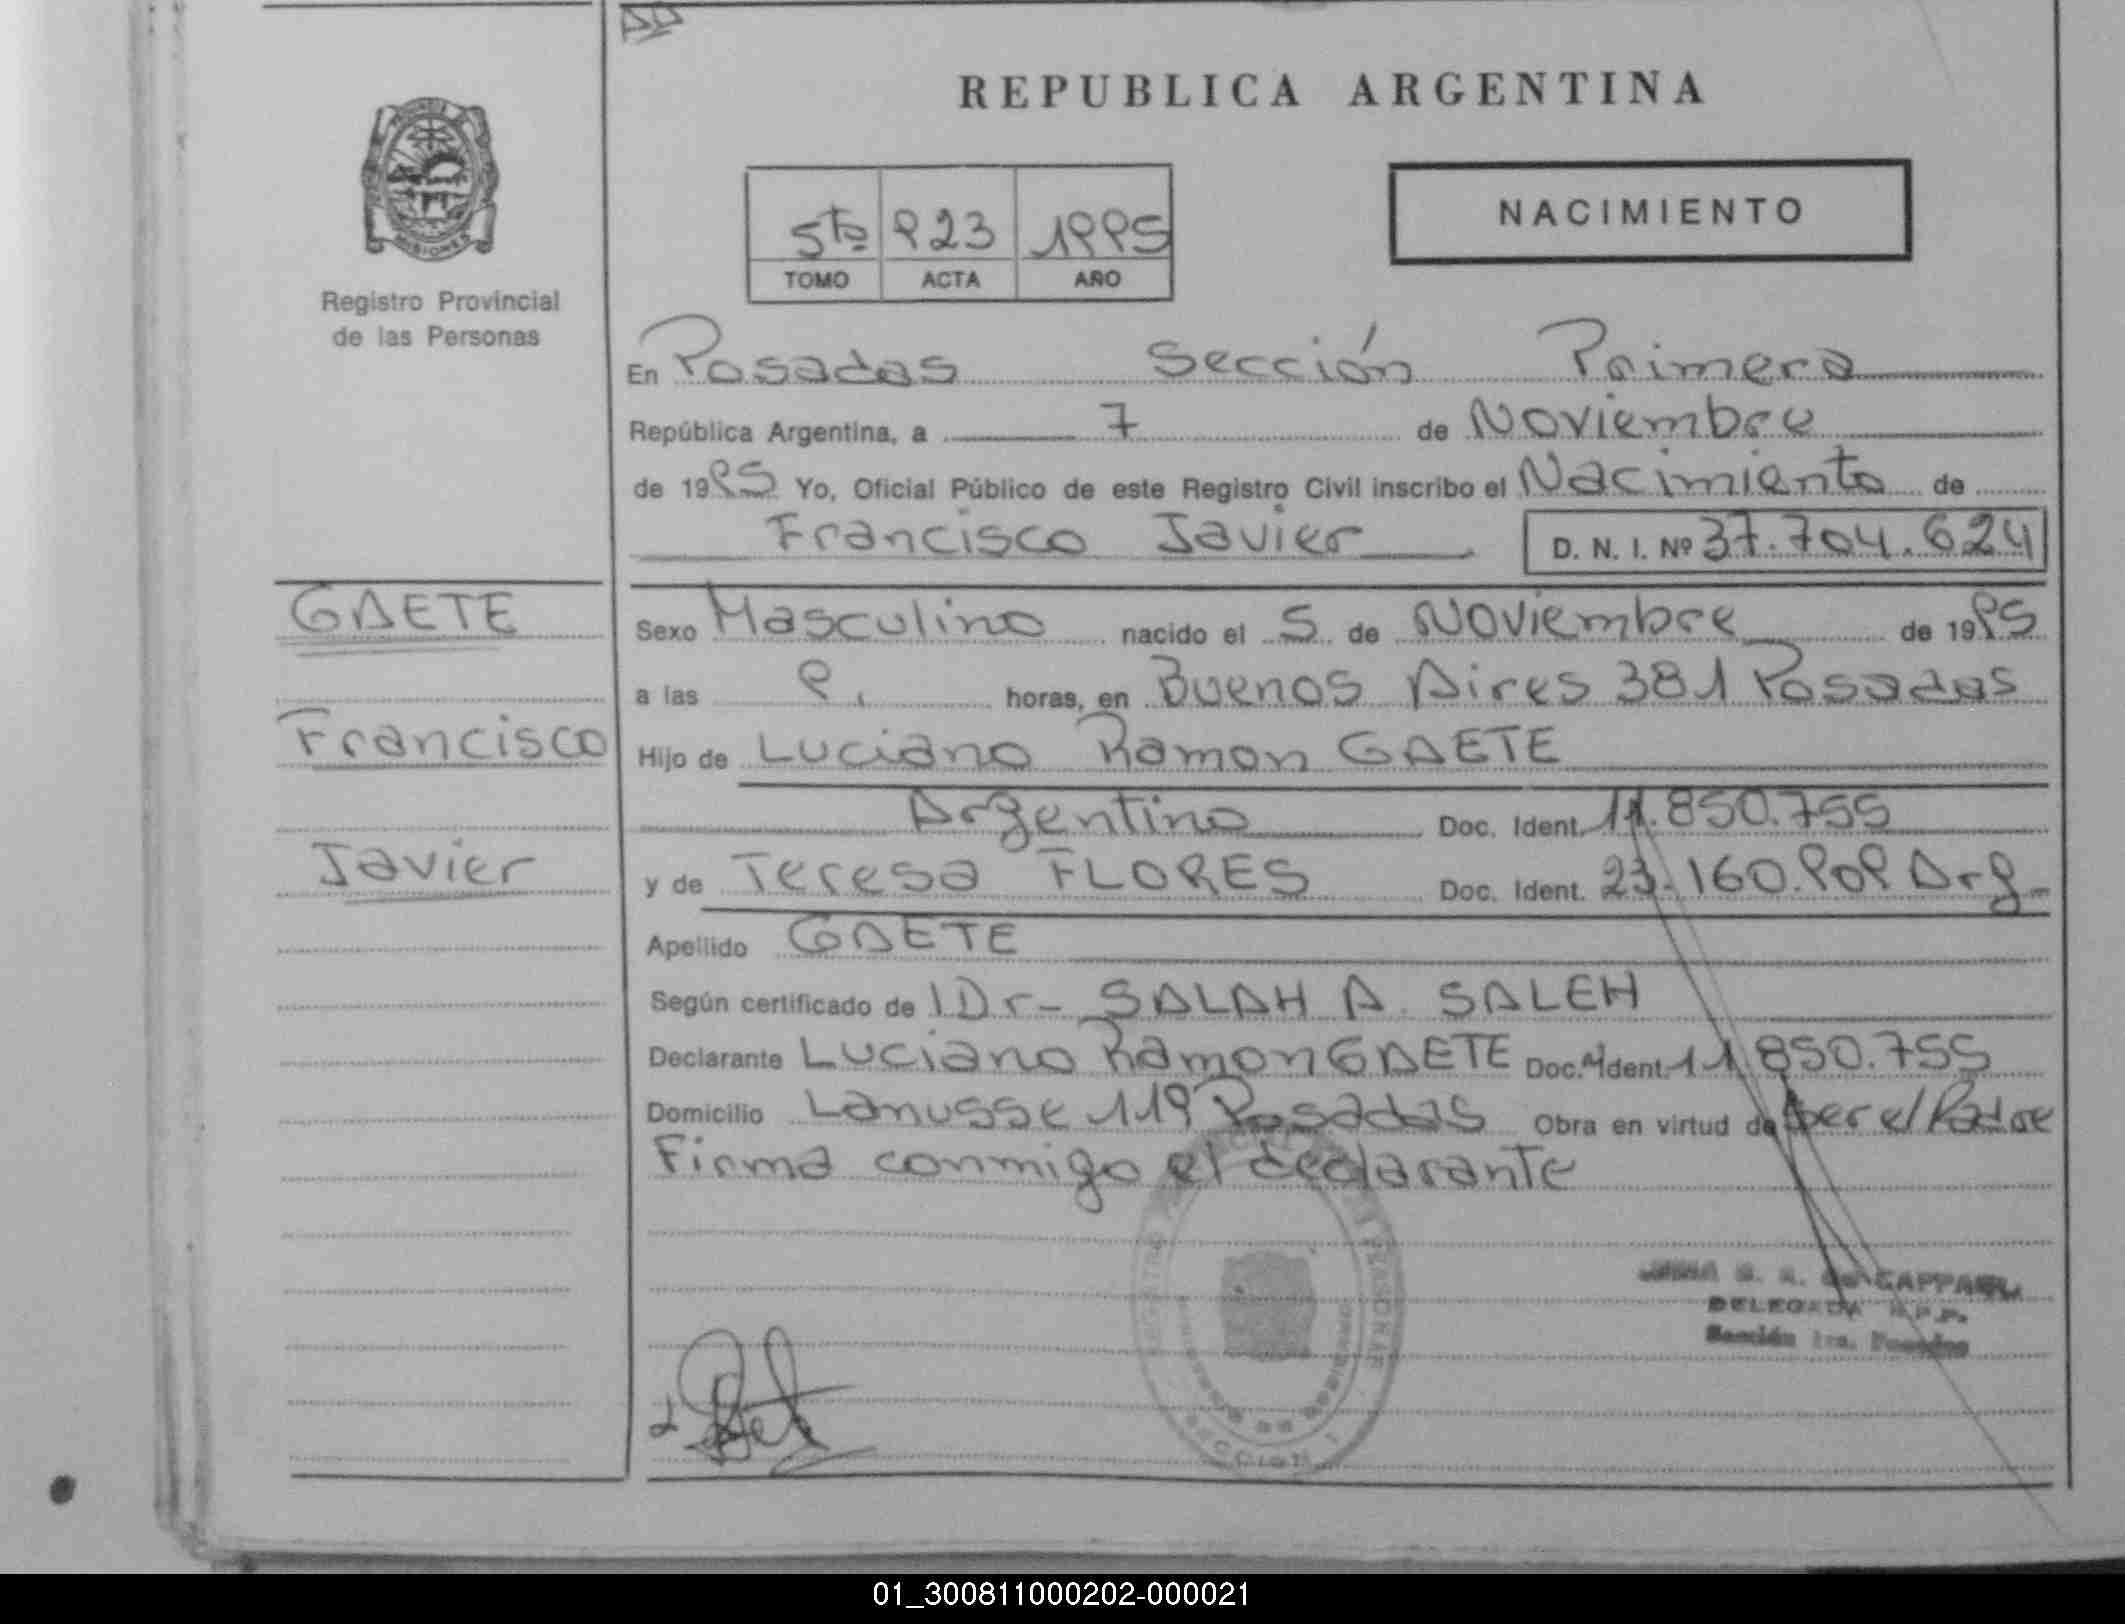 REPUBLICA ARGENTINA
MISIONES
Registro Provincial
de las Personas
5to 923 1995
TOMO ACTA AÑO
NACIMIENTO
En Posadas Sección Primera
República Argentina, a 7 de Noviembre
de 1995 Yo, Oficial Público de este Registro Civil inscribo el Nacimiento de
Francisco Javier D. N. I. Nº 37.704.624
GAETE
Francisco
Javier
Sexo Masculino nacido el 5 de Noviembre de 1995
a las 9. horas, en Buenos Aires 381 Posadas
Hijo de Luciano Ramon GAETE
Argentino Doc. Ident. 11.850.755
y de Teresa FLORES Doc. Ident. 23.160.909 Arg.
Apellido GAETE
Según certificado de Dr- SALAH A. SALEH
Declarante Luciano Ramon GAETE Doc. Ident. 11.850.755
Domicilio Lanusse 119 Posadas Obra en virtud de ser el Padre
Firma conmigo el declarante
S. A. de CAPPA
DELEGADA R.P.P.
Sección 1ra. Posadas
SECCION 1
01_300811000202-000021